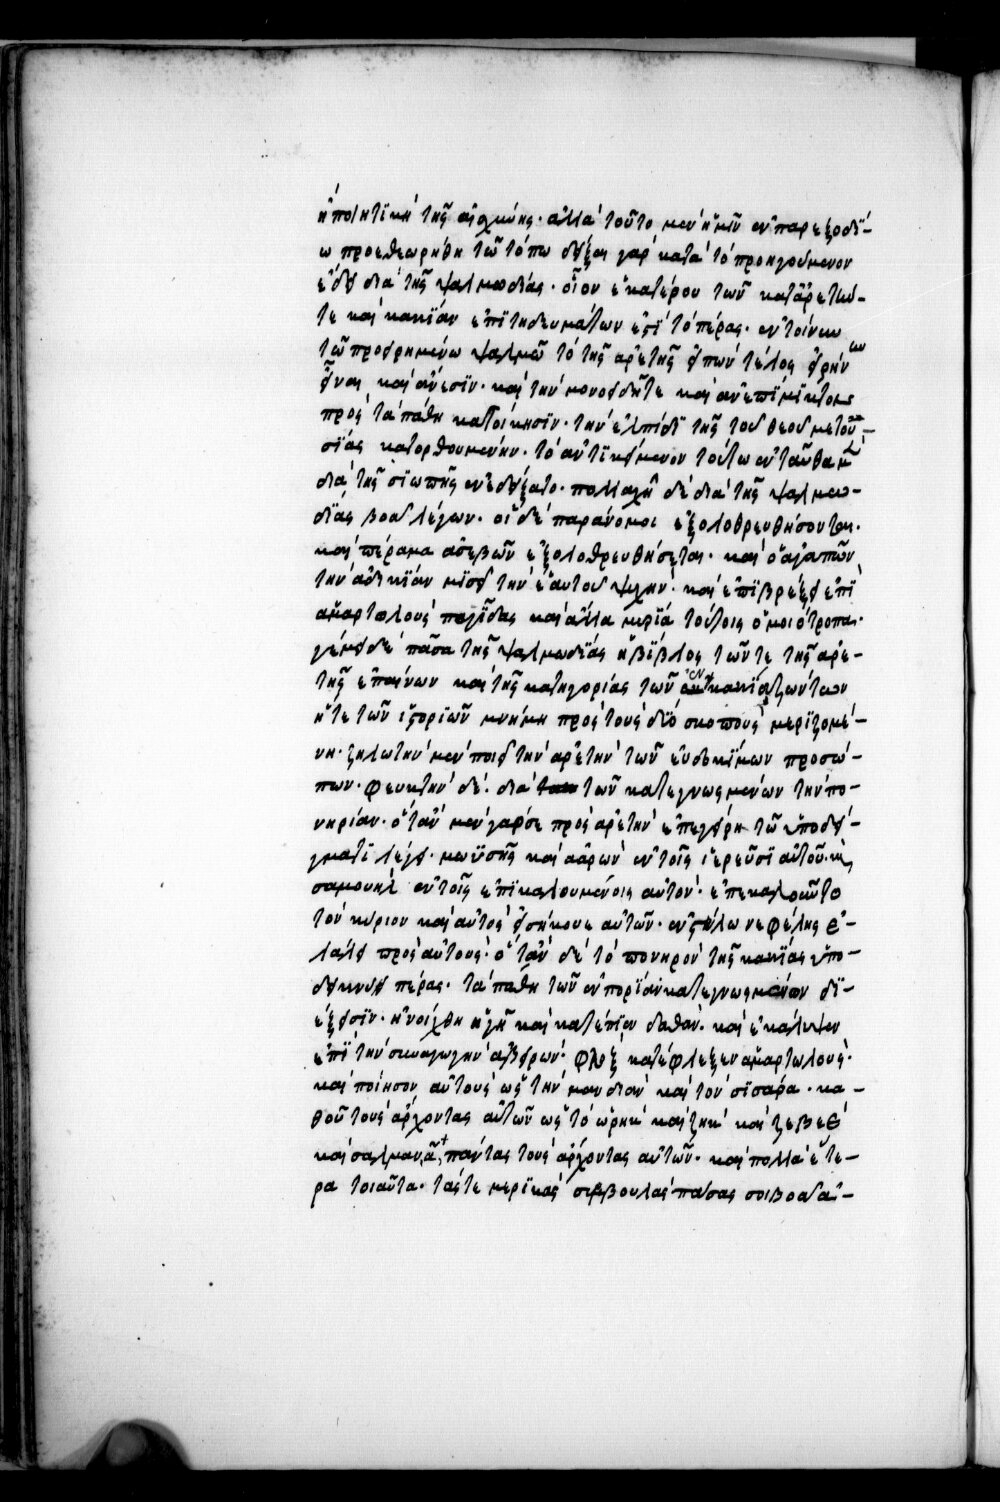 ἡ ποιητικὴ τῆς αἰσχύνης· ἀλλὰ τοῦτο μὲν ἡμῖν ἐν παρεξοδί-
ω προεθεωρήθη τῶ τόπω δείξει γὰρ κατὰ τὸ προηγούμενον
εἶδει διὰ τῆς ψαλμωδίας· οἷον ἑκατέρου τῶν κατ' ἀρετήν
τε καὶ κακίαν ἐπιτηδευμάτων ἐστὶ τὸ πέρας· ἐν τοίνυν
τῶ προειρημένω ψαλμῶ τὸ τῆς ἀρετῆς εἰπὼν τέλος εἰρήνην
εἶναι καὶ ἄνεσιν· καὶ τὴν μονοειδῆ τε καὶ ἀνεπίμικτον
πρὸς τὰ πάθη κατοίκησιν· τὴν ἐλπίδι τῆς τοῦ θεοῦ μετου-
σίας κατορθουμένην· τὸ ἀντικείμενον τούτω ἐνταῦθα
διὰ τῆς σιωπῆς ἐνεδείξατο· πολλαχῆ δὲ διὰ τῆς ψαλμω-
δίας βοᾶ λέγων· οἱ δὲ παράνομοι ἐξολοθρευθήσονται·
καὶ σπέρμα ἀσεβῶν ἐξολοθρευθήσεται· καὶ ὁ ἀγαπῶν
τὴν ἀδικίαν μισεῖ τὴν ἑαυτοῦ ψυχήν· καὶ ἐπιβρέξει ἐπὶ
ἁμαρτωλοὺς παγίδας καὶ ἄλλα μυρία τούτοις ὁμοιότροπα·
γέμει δὲ πᾶσα τῆς ψαλμωδίας ἡ βίβλος τῶν τε τῆς ἀρε-
τῆς ἐπαίνων καὶ τῆς κατηγορίας τῶν ἐν κακία ζώντων
ἥ τε τῶν ἱστοριῶν μνήμη πρὸς τοὺς δύο σκοποὺς μεριζομέ-
νη· ζηλωτὴν μὲν ποιεῖ τὴν ἀρετὴν τῶν εὐδοκίμων προσώ-
πων· φευκτὴν δὲ· διὰ τῶν κατεγνωσμένων τὴν πο-
νηρίαν· ὅταν μὲν γάρ σε πρὸς ἀρετὴν ἐπεγείρη τῶ ὑποδεί-
γματι λέγει· μωϋσῆς καὶ ἀαρὼν ἐν τοῖς ἱερεῦσι αὐτοῦ· καὶ
σαμουὴλ ἐν τοῖς ἐπικαλουμένοις αὐτὸν· ἐπεκαλοῦντο
τὸν κύριον καὶ αὐτὸς εἰσήκουε αὐτῶν· ἐν στύλω νεφέλης ἐ-
λάλει πρὸς αὐτοὺς· ὅταν δὲ τὸ πονηρὸν τῆς κακίας ὑπο-
δεικνύει πέρας· τὰ πάθη τῶν ἐν πονηρία κατεγνωσμένων δι-
έξεισιν· ἠνοίχθη ἡ γῆ καὶ κατέπιεν δαθάν· καὶ ἐκάλυψεν
ἐπὶ τὴν συναγωγὴν ἀβειρὼν· φλὸξ κατέφλεξεν ἁμαρτωλούς·
καὶ ποίησον αὐτοὺς ὡς τὴν μαδιὰν καὶ τὸν σισάρα· κα-
θοῦ τοὺς ἄρχοντας αὐτῶν ὡς τὸ ὠρὴκ καὶ ζὴκ καὶ ζεβεὲ
καὶ σαλμανᾶ, πάντας τοὺς ἄρχοντας αὐτῶν· καὶ πολλὰ ἕτε-
ρα τοιαῦτα· τάς τε μερικὰς συμβουλὰς πάσας